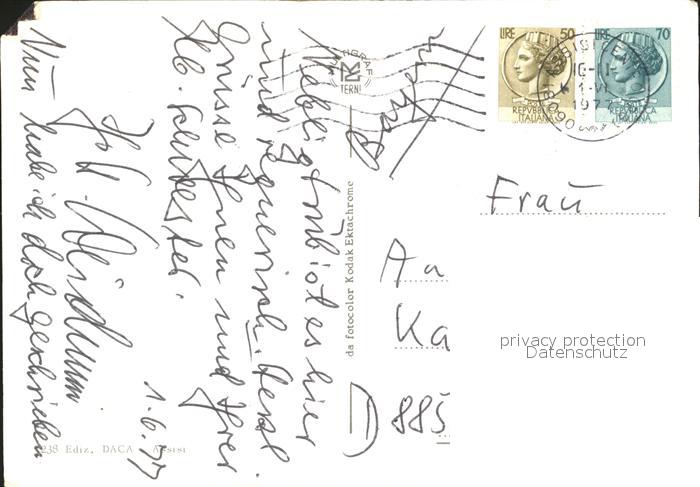 1.6.77
Mäßig trüb ist es hier
und regnerisch. Herzl.
Grüsse Ihnen und Ihrer
lb. Schwester.
Nun habe ich doch geschrieben
LIRE 50
REPUBBLICA
ITALIANA
LIRE 70
REPUBBLICA
ITALIANA
TERNI
1977
Frau
Aa
Ka
D 885
da fotocolor Kodak Ektachrome
238 Ediz. DACA - Assisi
privacy protection
Datenschutz